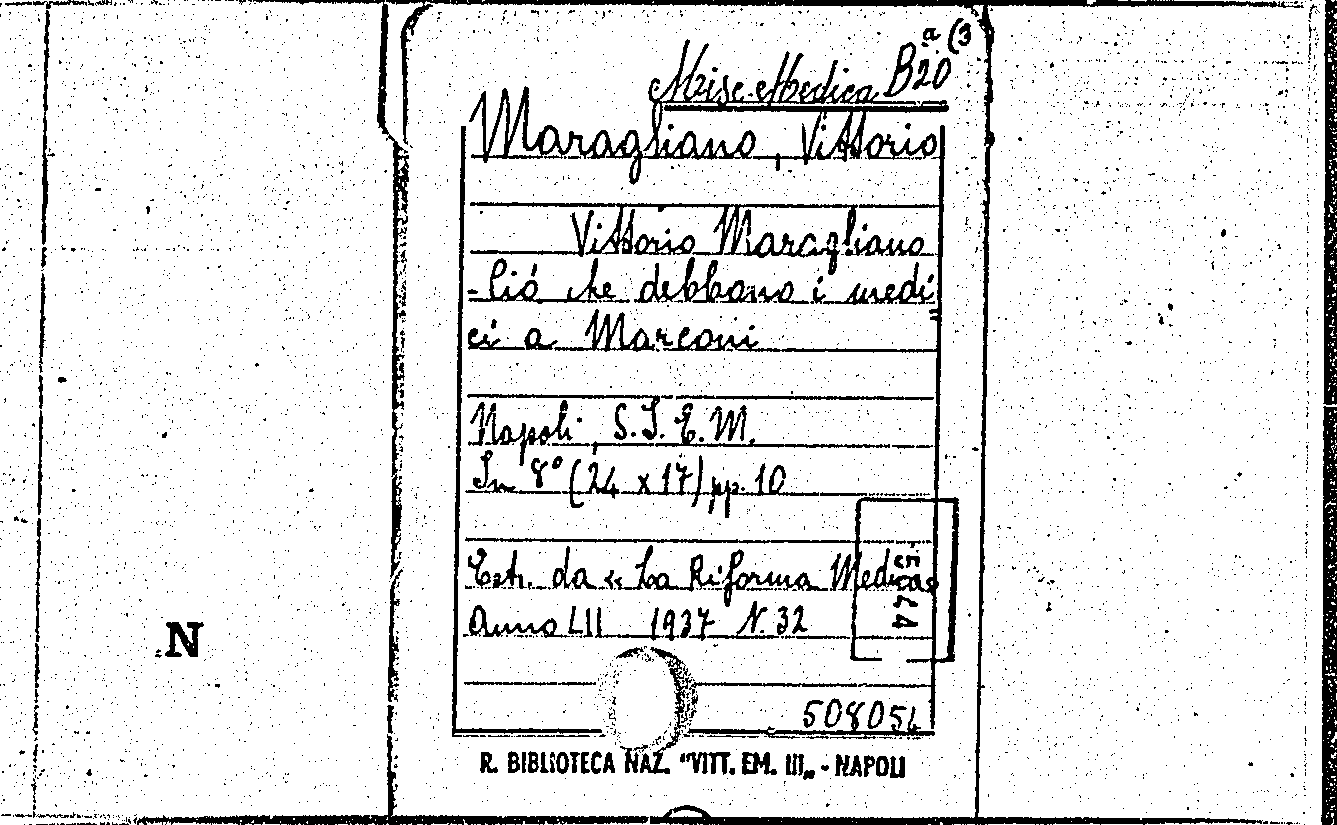 Misc. Medica B20 a (3
Maragliano, Vittorio
Vittorio Maragliano
- Ció che debbano i medi=
ci a Marconi
Napoli, S.I.E.M.
In 8° (24 x 17) pp. 10
Estr. da « La Riforma Medica»
Anno LII 1937 N. 32
N
508054
R. BIBLIOTECA NAZ. "VITT. EM. III„ - NAPOLI